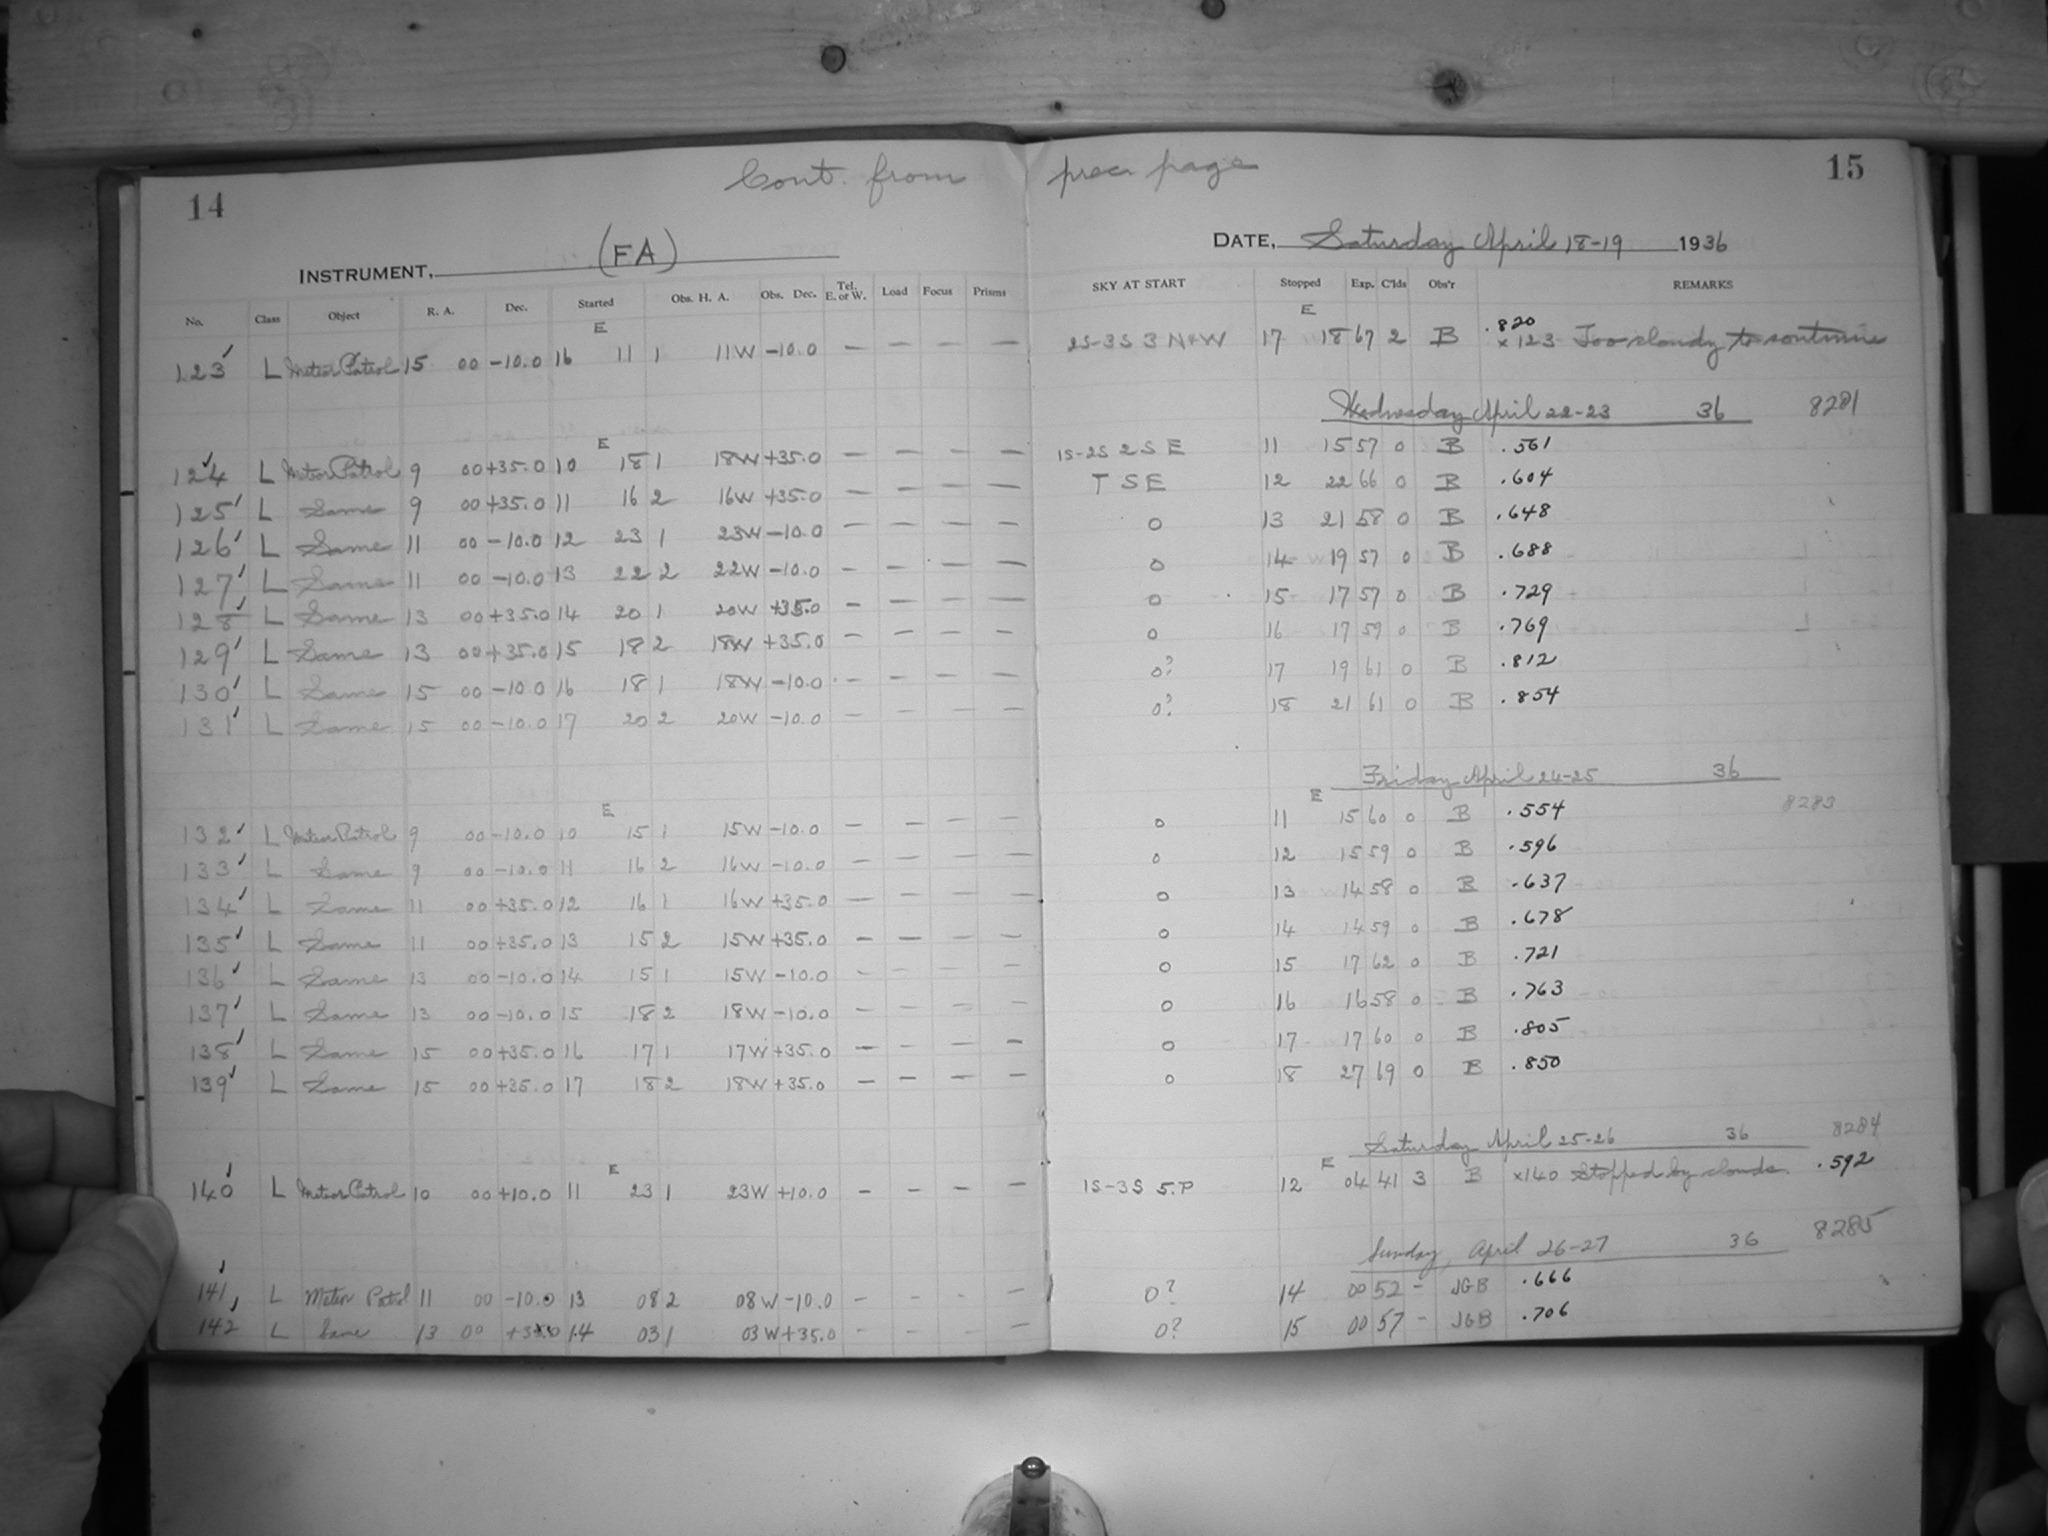 Cont. from prec. page
14
15
INSTRUMENT, (FA)
DATE, Saturday April 18-19 1936
No. Class Object R. A. Dec. Started Obs. H. A. Obs. Dec. Tel. E. or W. Load Focus Prisms SKY AT START Stopped Exp. C'lds Obs'r REMARKS
E E
123 L Meteor Patrol 15 00 -10.0 16 11 1 11W -10.0 — — — — 2S-3S 3 N+W 17 18 67 2 B .820 x 123 Too cloudy to continue
Wednesday April 22-23 36 8281
E
124 L Meteor Patrol 9 00 +35.0 10 18 1 18W +35.0 — — — — 1S-2S 2 S E 11 15 57 0 B .561
125 L Same 9 00 +35.0 11 16 2 16W +35.0 — — — — T S E 12 22 66 0 B .604
126 L Same 11 00 -10.0 12 23 1 23W -10.0 — — — — 0 13 21 58 0 B .648
127 L Same 11 00 -10.0 13 22 2 22W -10.0 — — — — 0 14 19 57 0 B .688
128 L Same 13 00 +35.0 14 20 1 20W +35.0 — — — — 0 15 17 57 0 B .729
129 L Same 13 00 +35.0 15 18 2 18W +35.0 — — — — 0 16 17 59 0 B .769
130 L Same 15 00 -10.0 16 18 1 18W -10.0 — — — — 0? 17 19 61 0 B .812
131 L Same 15 00 -10.0 17 20 2 20W -10.0 — — — — 0? 18 21 61 0 B .854
Friday April 24-25 36
8283
E E
132 L Meteor Patrol 9 00 -10.0 10 15 1 15W -10.0 — — — — 0 11 15 60 0 B .554
133 L Same 9 00 -10.0 11 16 2 16W -10.0 — — — — 0 12 15 59 0 B .596
134 L Same 11 00 +35.0 12 16 1 16W +35.0 — — — — 0 13 14 58 0 B .637
135 L Same 11 00 +35.0 13 15 2 15W +35.0 — — — — 0 14 14 59 0 B .678
136 L Same 13 00 -10.0 14 15 1 15W -10.0 — — — — 0 15 17 62 0 B .721
137 L Same 13 00 -10.0 15 18 2 18W -10.0 — — — — 0 16 16 58 0 B .763
138 L Same 15 00 +35.0 16 17 1 17W +35.0 — — — — 0 17 17 60 0 B .805
139 L Same 15 00 +35.0 17 18 2 18W +35.0 — — — — 0 18 27 69 0 B .850
Saturday April 25-26 36 8284
E E
140 L Meteor Patrol 10 00 +10.0 11 23 1 23W +10.0 — — — — 1S-3S 5.P 12 04 41 3 B x140 Stopped by clouds. .592
Sunday, April 26-27 36 8285
141 L Meteor Patrol 11 00 -10.0 13 08 2 08W -10.0 — — — — 0? 14 00 52 - JGB .666
142 L Same 13 00 +35.0 14 03 1 03W +35.0 — — — — 0? 15 00 57 - JGB .706